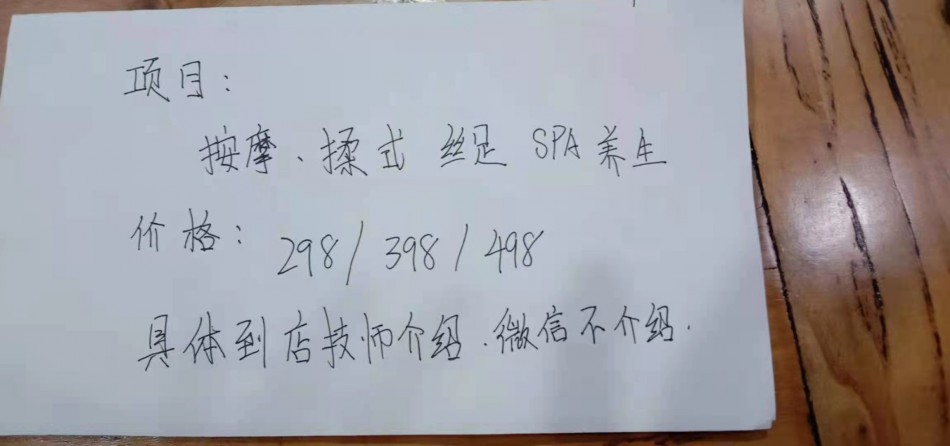 项目：
按摩、揉式 丝足 SPA养生
价格：298/398/498
具体到店技师介绍.微信不介绍.